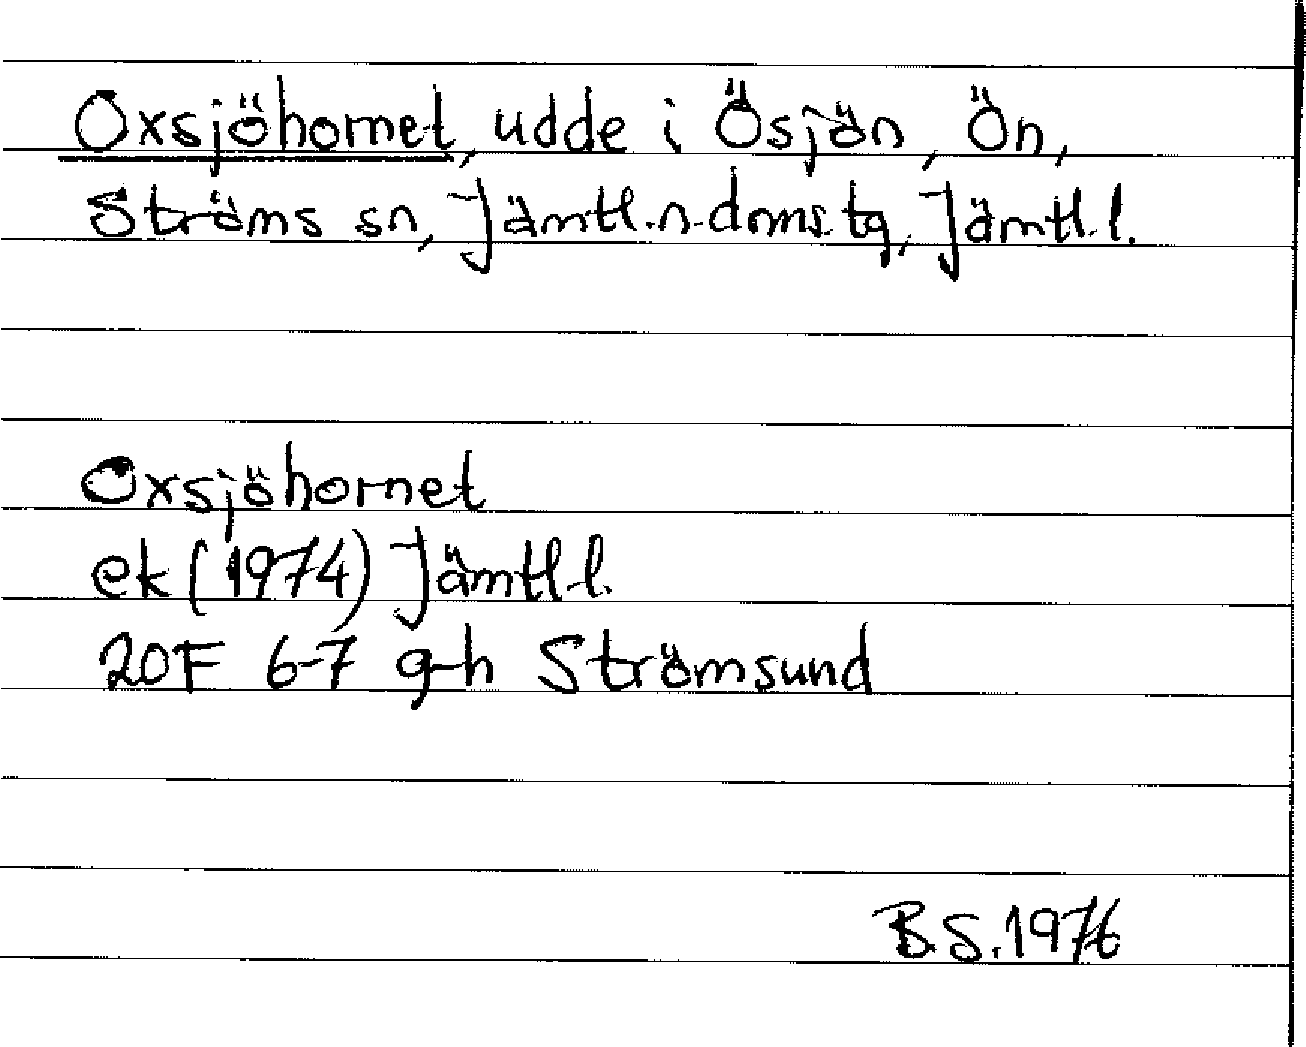 Oxsjöhornet, udde i Ösjön, Ön,
Ströms sn, Jämtl.n.doms.tg, Jämtl.l.
Oxsjöhornet
ek (1974) Jämtl.l.
20F 6-7 g-h Strömsund
B.S. 1976